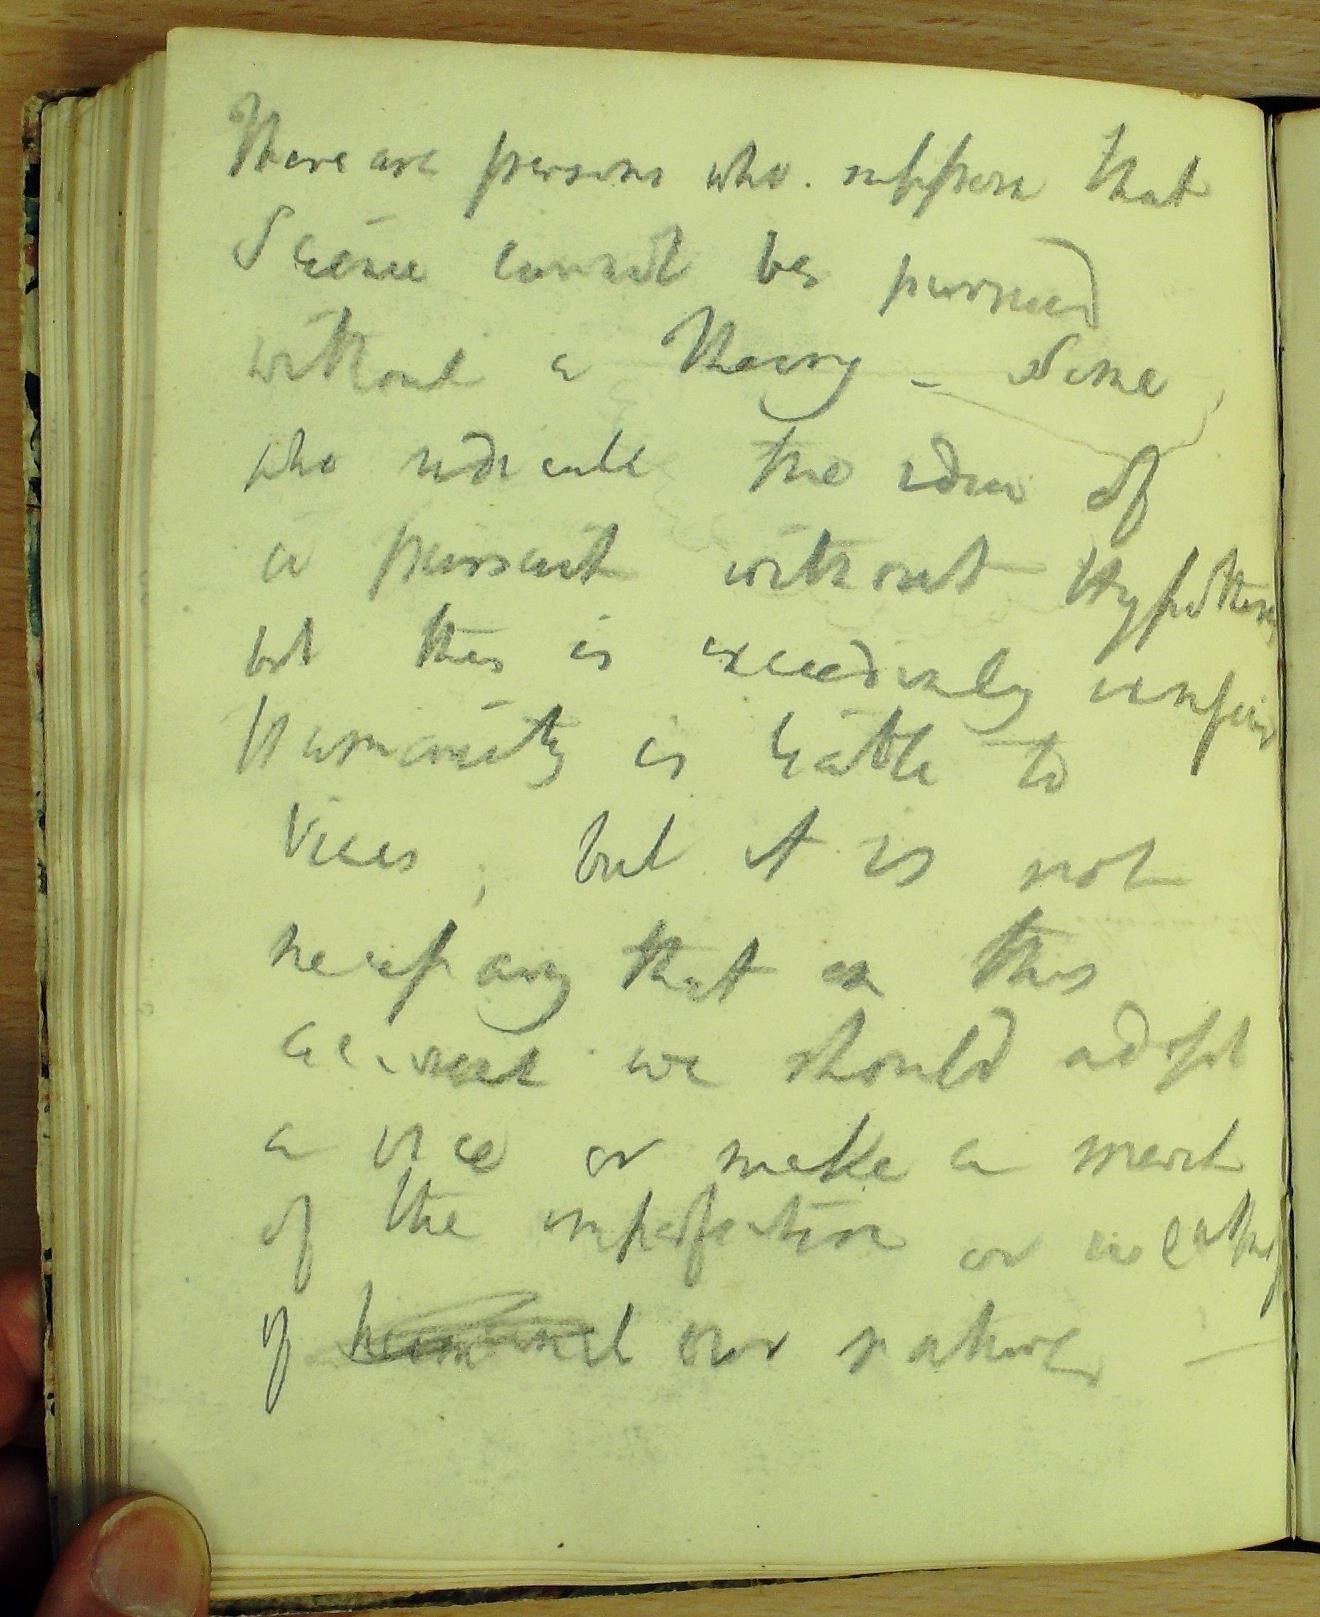 There are persons who suppose that
Science cannot be pursued
without a Theory – Some
who ridicule the idea of
a pursuit without Hypothesis
but this is exceedingly unfair
Humanity is liable to
Vices, but it is not
necessary that on this
account we should adopt
a vice or make a merit
of the imperfection or weakness
of our nature –